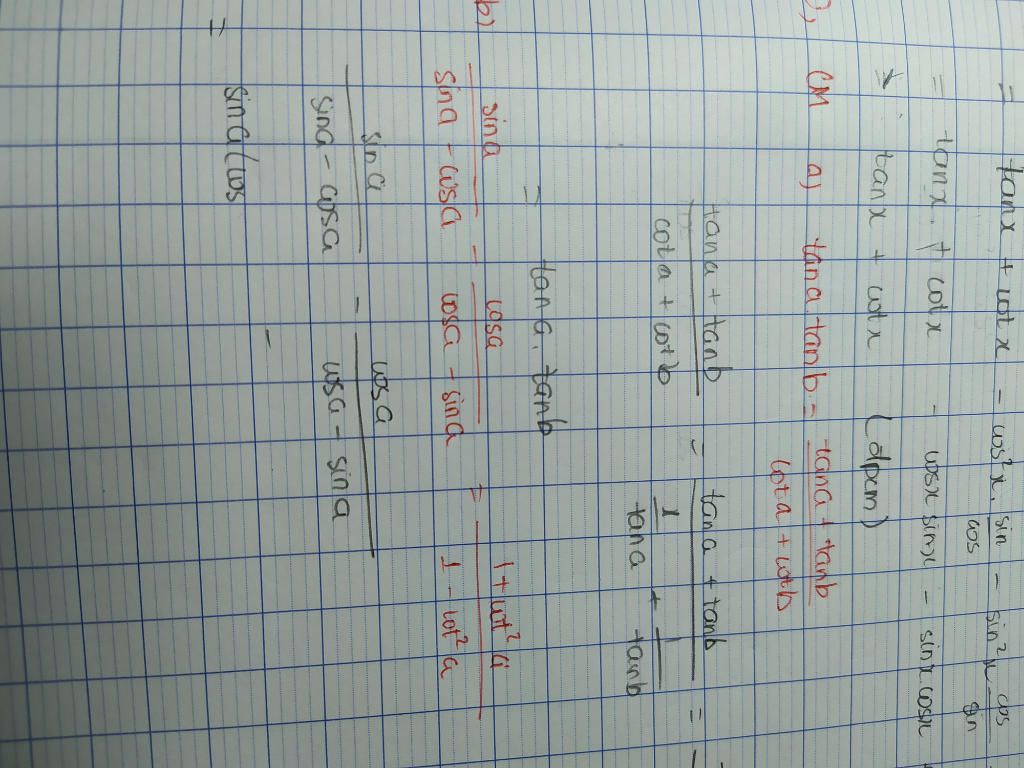 = tanx + cotx - cos²x. sin/cos - sin²x. cos/sin
= tanx. + cotx - cosx sinx - sinx cosx
= tanx + cotx (đpcm)
CM a) tana.tanb = (tana + tanb)/(cota + cotb)
(tana + tanb)/(cota + cotb) = (tana + tanb)/(1/tana + 1/tanb) =
= tana. tanb
b) sina/(sina - cosa) - cosa/(cosa - sina) = (1 + cot²a)/(1 - cot²a)
sina/(sina - cosa) - cosa/(cosa - sina)
= sina(cos -